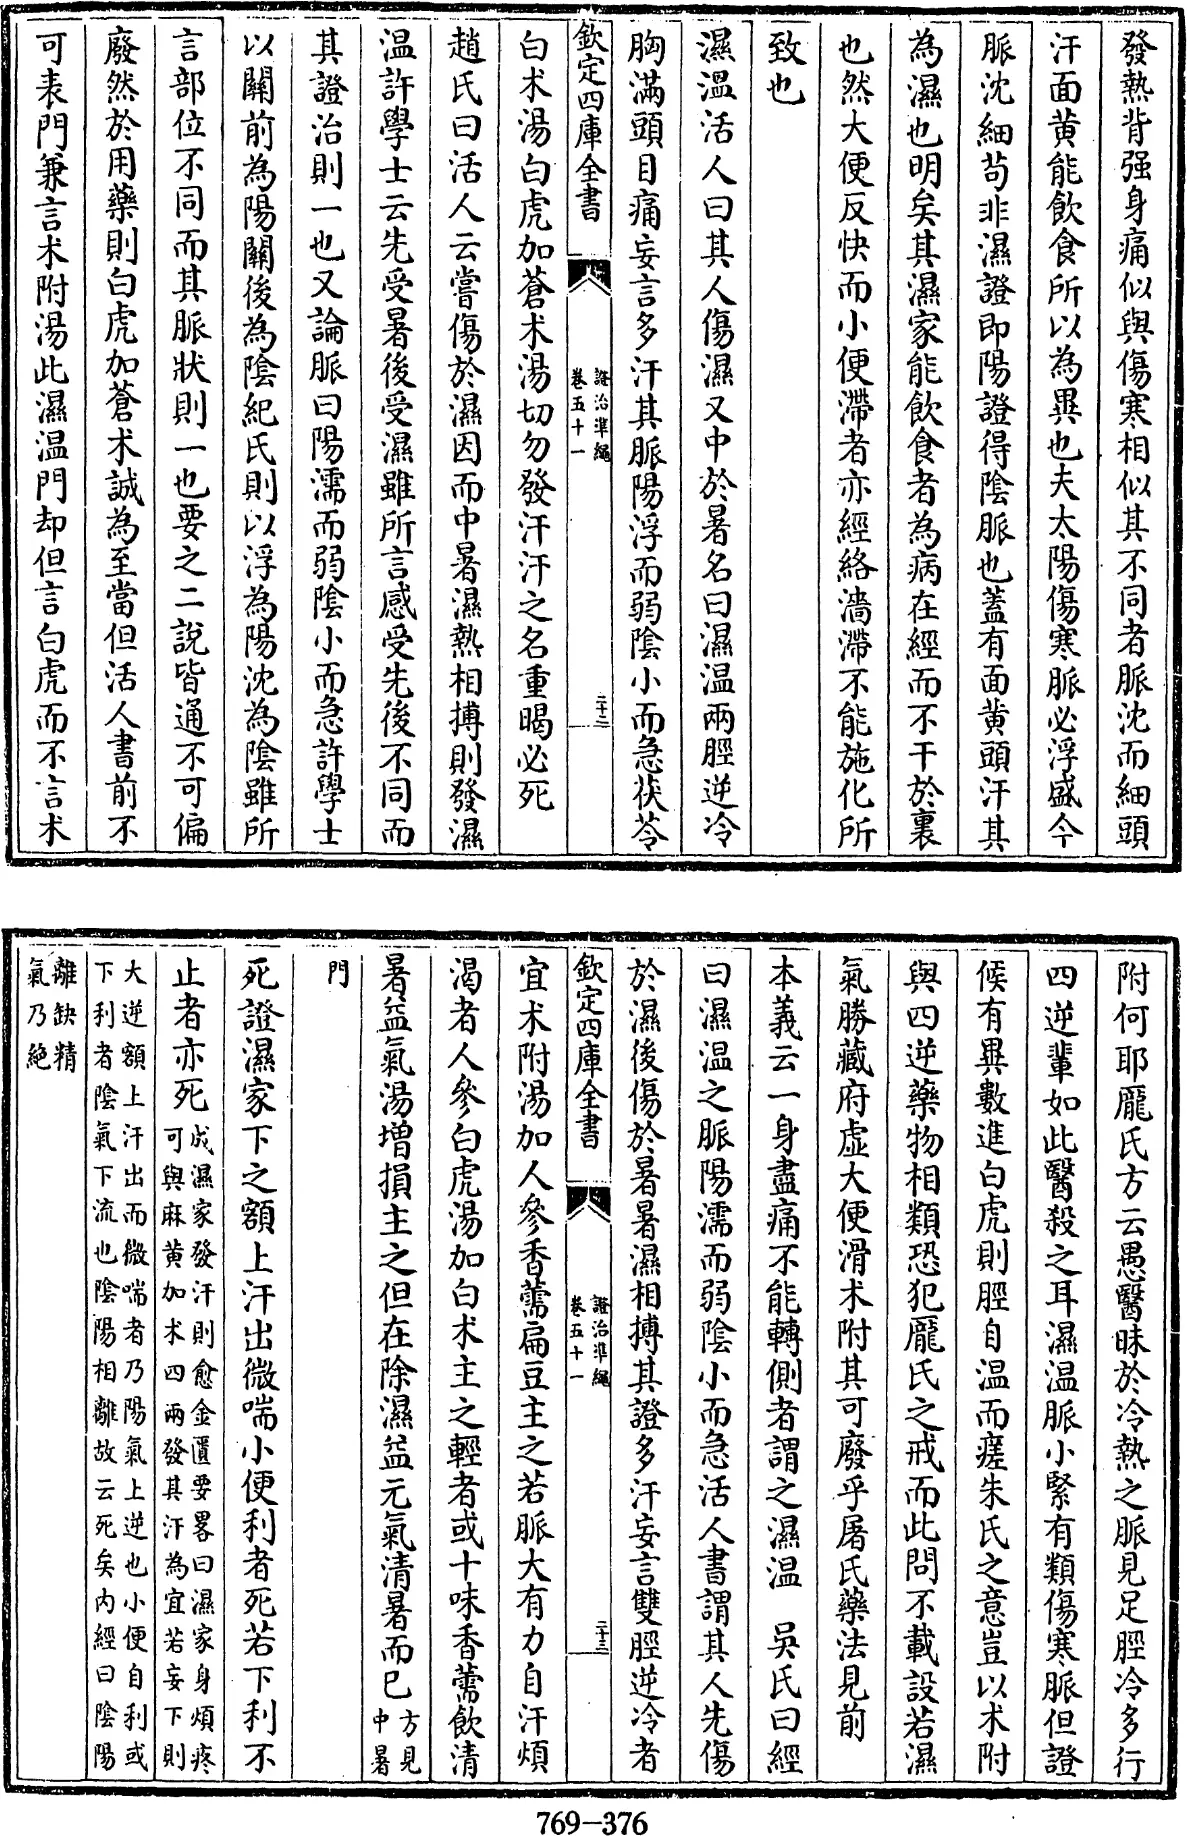 發熱背强身痛似與傷寒相似其不同者脈沈而細頭
汗面黄能飲食所以為異也夫太陽傷寒脈必浮盛今
脈沈細茍非濕證即陽證得陰脈也蓋有面黄頭汗其
為濕也明矣其濕家能飲食者為病在經而不干於裏
也然大便反快而小便滯者亦經絡濇滯不能施化所
致也
濕温活人曰其人傷濕又中於暑名曰濕温兩脛逆冷
胸滿頭目痛妄言多汗其脈陽浮而弱陰小而急茯苓
欽定四庫全書
證治準繩
卷五十一
二十二
白术湯白虎加蒼术湯切勿發汗汗之名重暍必死
趙氏曰活人云嘗傷於濕因而中暑濕熱相搏則發濕
温許學士云先受暑後受濕雖所言感受先後不同而
其證治則一也又論脈曰陽濡而弱陰小而急許學士
以關前為陽關後為陰紀氏則以浮為陽沈為陰雖所
言部位不同而其脈狀則一也要之二說皆通不可偏
廢然於用藥則白虎加蒼术誠為至當但活人書前不
可表門兼言术附湯此濕温門却但言白虎而不言术
附何耶龎氏方云愚醫昧於冷熱之脈見足脛冷多行
四逆輩如此醫殺之耳濕温脈小緊有類傷寒脈但證
候有異數進白虎則脛自温而瘥朱氏之意豈以术附
與四逆藥物相類恐犯龎氏之戒而此問不載設若濕
氣勝藏府虚大便滑术附其可廢乎屠氏藥法見前
本義云一身盡痛不能轉側者謂之濕温　吳氏曰經
曰濕温之脈陽濡而弱陰小而急活人書謂其人先傷
於濕後傷於暑暑濕相搏其證多汗妄言雙脛逆冷者
欽定四庫全書
證治準繩
卷五十一
二十三
宜术附湯加人參香薷扁豆主之若脈大有力自汗煩
渴者人參白虎湯加白术主之輕者或十味香薷飲清
暑益氣湯增損主之但在除濕益元氣清暑而已方見中暑
門
死證濕家下之額上汗出微喘小便利者死若下利不
止者亦死成濕家發汗則愈金匱要畧曰濕家身煩疼可與麻黄加术四兩發其汗為宜若妄下則
大逆額上汗出而微喘者乃陽氣上逆也小便自利或下利者陰氣下流也陰陽相離故云死矣内經曰陰陽
離缺精氣乃絶
769-376